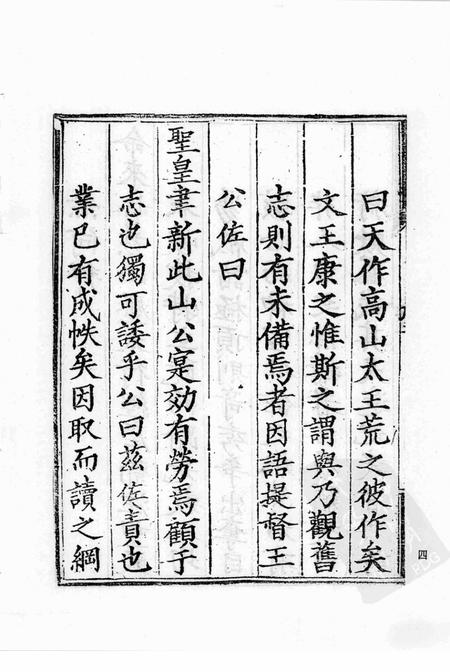 曰天作高山太王荒之彼作矣
文王康之惟斯之謂與乃觀舊
志則有未備焉者因語提督王
公佐曰
聖皇聿新此山公寔効有勞焉顧于
志也獨可諉乎公曰兹佐責也
業已有成帙矣因取而讀之綱
四